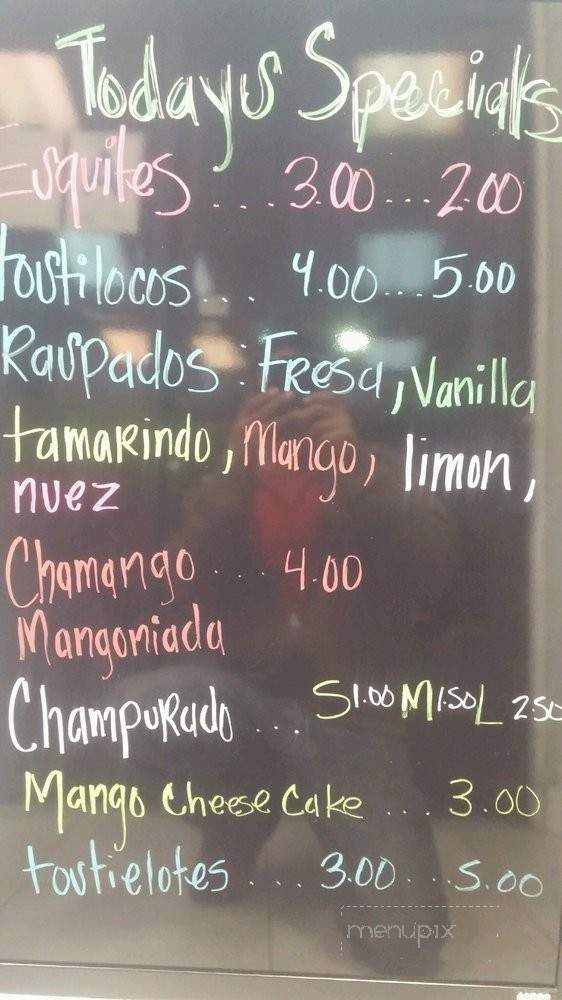 Todays Specials
Esquites ... 3.00 ... 2.00
tostilocos ... 4.00 ... 5.00
Raspados : Fresa, Vanilla
tamarindo, Mango, limon,
nuez
Chamango ... 4.00
Mangoniada
Champurado ... S 1.00 M 1.50 L 2.50
Mango Cheese Cake ... 3.00
tostielotes ... 3.00 ... 5.00
menupix